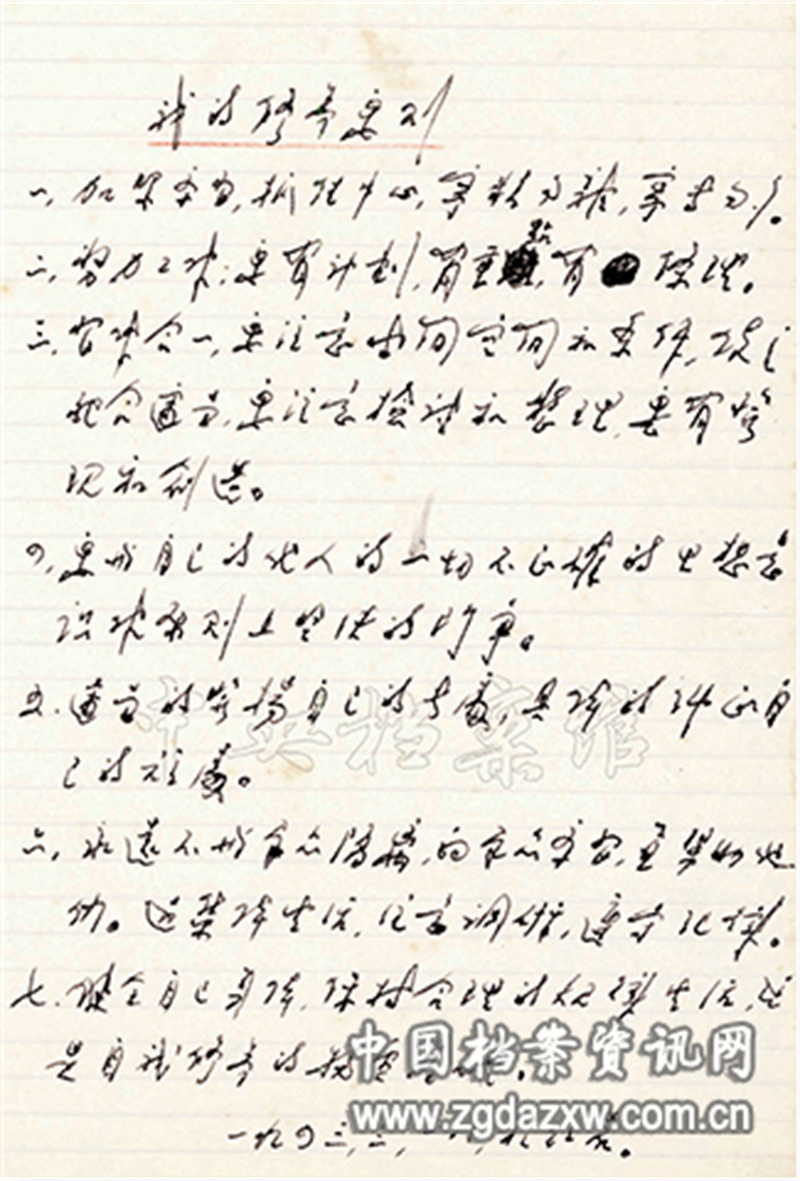 我的修养要则
一、加紧学习，抓住中心，宁精勿杂，宁专勿多。
二、努力工作，要有计划，有重点，有条理。
三、习作合一，要注意时间空间和条件，使之
配合适当，要注意检讨和整理，要有发
现和创造。
四、要与自己的他人的一切不正确的思想意
识作原则上坚决的斗争。
五、适当的发扬自己的长处，具体的纠正自
己的短处。
六、永远不与群众隔离，向群众学习，并帮助他
们。过集体生活，注意调研，遵守纪律。
七、健全自己身体，保持合理的规律生活，这
是自我修养的物质
一九四三，三，
中央档案馆
中国档案资讯网
www.zgdazxw.com.cn